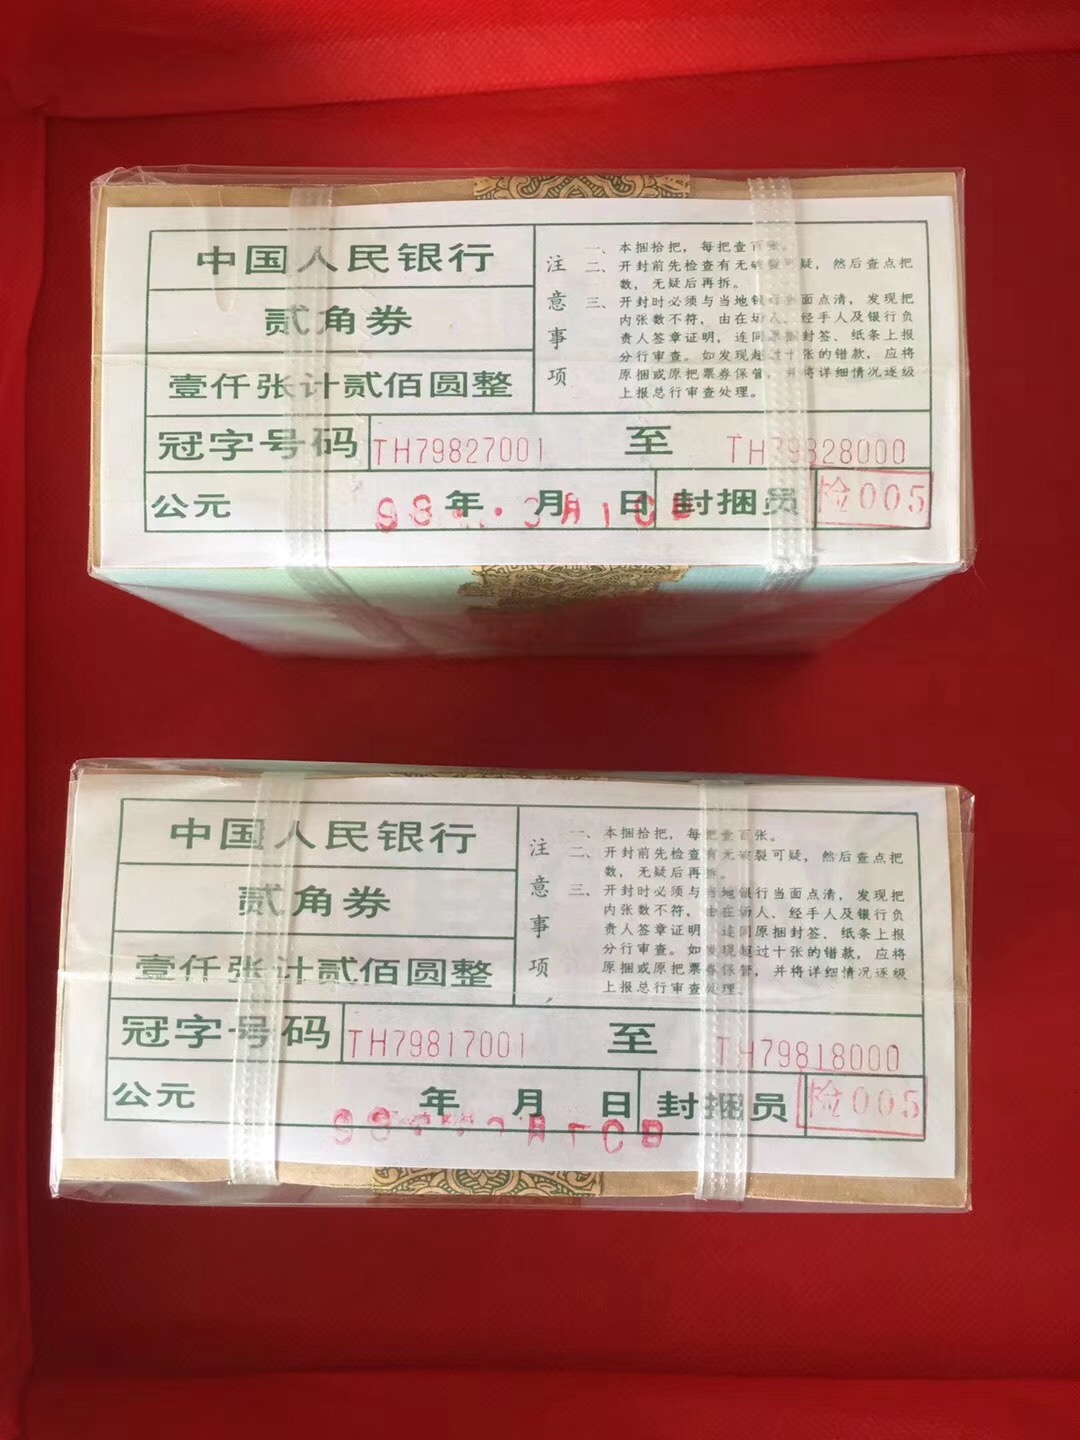 中国人民银行
贰角券
壹仟张计贰佰圆整
注意事项
一、本捆拾把，每把壹百张。
二、开封前先检查有无破裂可疑，然后查点把
数，无疑后再拆。
三、开封时必须与当地银行当面点清，发现把
内张数不符，由在场人、经手人及银行负
责人签章证明，连同原捆封签、纸条上报
分行审查。如发现超过十张的错款，应将
原捆或原把票券保管，并将详细情况逐级
上报总行审查处理。
冠字号码 TH79827001 至 TH79828000
公元 年 月 日 封捆员 检005
中国人民银行
贰角券
壹仟张计贰佰圆整
注意事项
一、本捆拾把，每把壹百张。
二、开封前先检查有无破裂可疑，然后查点把
数，无疑后再拆。
三、开封时必须与当地银行当面点清，发现把
内张数不符，由在场人、经手人及银行负
责人签章证明，连同原捆封签、纸条上报
分行审查。如发现超过十张的错款，应将
原捆或原把票券保管，并将详细情况逐级
上报总行审查处理。
冠字号码 TH79817001 至 TH79818000
公元 年 月 日 封捆员 检005